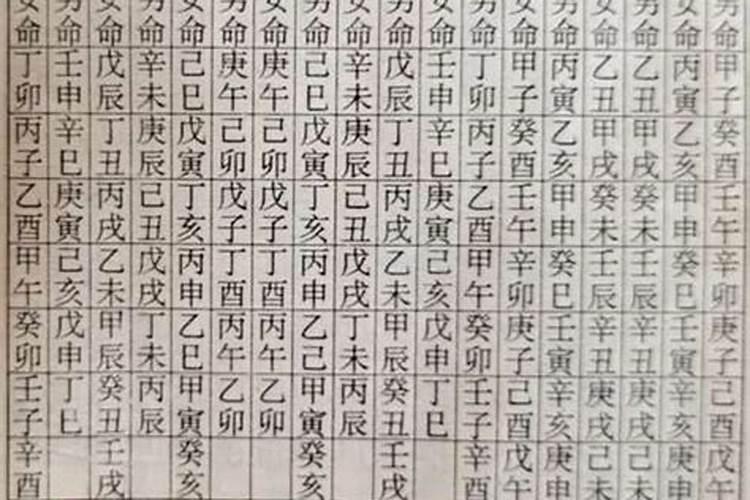 男命甲子癸酉壬午辛卯庚子己酉戊午
女命丙寅乙亥甲申癸巳壬寅辛亥庚申
男命乙丑甲戌癸未壬辰辛丑庚戌己未
女命乙丑甲戌癸未壬辰辛丑庚戌己未
男命丙寅乙亥甲申癸巳壬寅辛亥庚申
女命甲子癸酉壬午辛卯庚子己酉戊午
男命丁卯丙子乙酉甲午癸卯壬子辛酉
女命壬申辛巳庚寅己亥戊申丁巳
男命戊辰丁丑丙戌乙未甲辰癸丑壬戌
女命辛未庚辰己丑戊戌丁未丙辰
男命己巳戊寅丁亥丙申乙己甲寅癸亥
女命庚午己卯戊子丁酉丙午乙卯
男命庚午己卯戊子丁酉丙午乙卯
女命己巳戊寅丁亥丙申乙巳甲寅癸亥
男命辛未庚辰己丑戊戌丁未丙辰
女命戊辰丁丑丙戌乙未甲辰癸丑壬戌
男命壬申辛巳庚寅己亥戊申丁巳
女命丁卯丙子乙酉甲午癸卯壬子辛酉